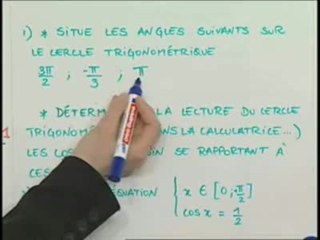 1) * SITUE LES ANGLES SUIVANTS SUR
LE CERCLE TRIGONOMÉTRIQUE
3π/2 ; -π/3 ; π
* DÉTERM LA LECTURE DU CERCLE
TRIGONOM NS LA CALCULATRICE...)
LES COS IN SE RAPPORTANT À
CES
ÉQUATION { x ∈ [0; π/2]
cos x = 1/2